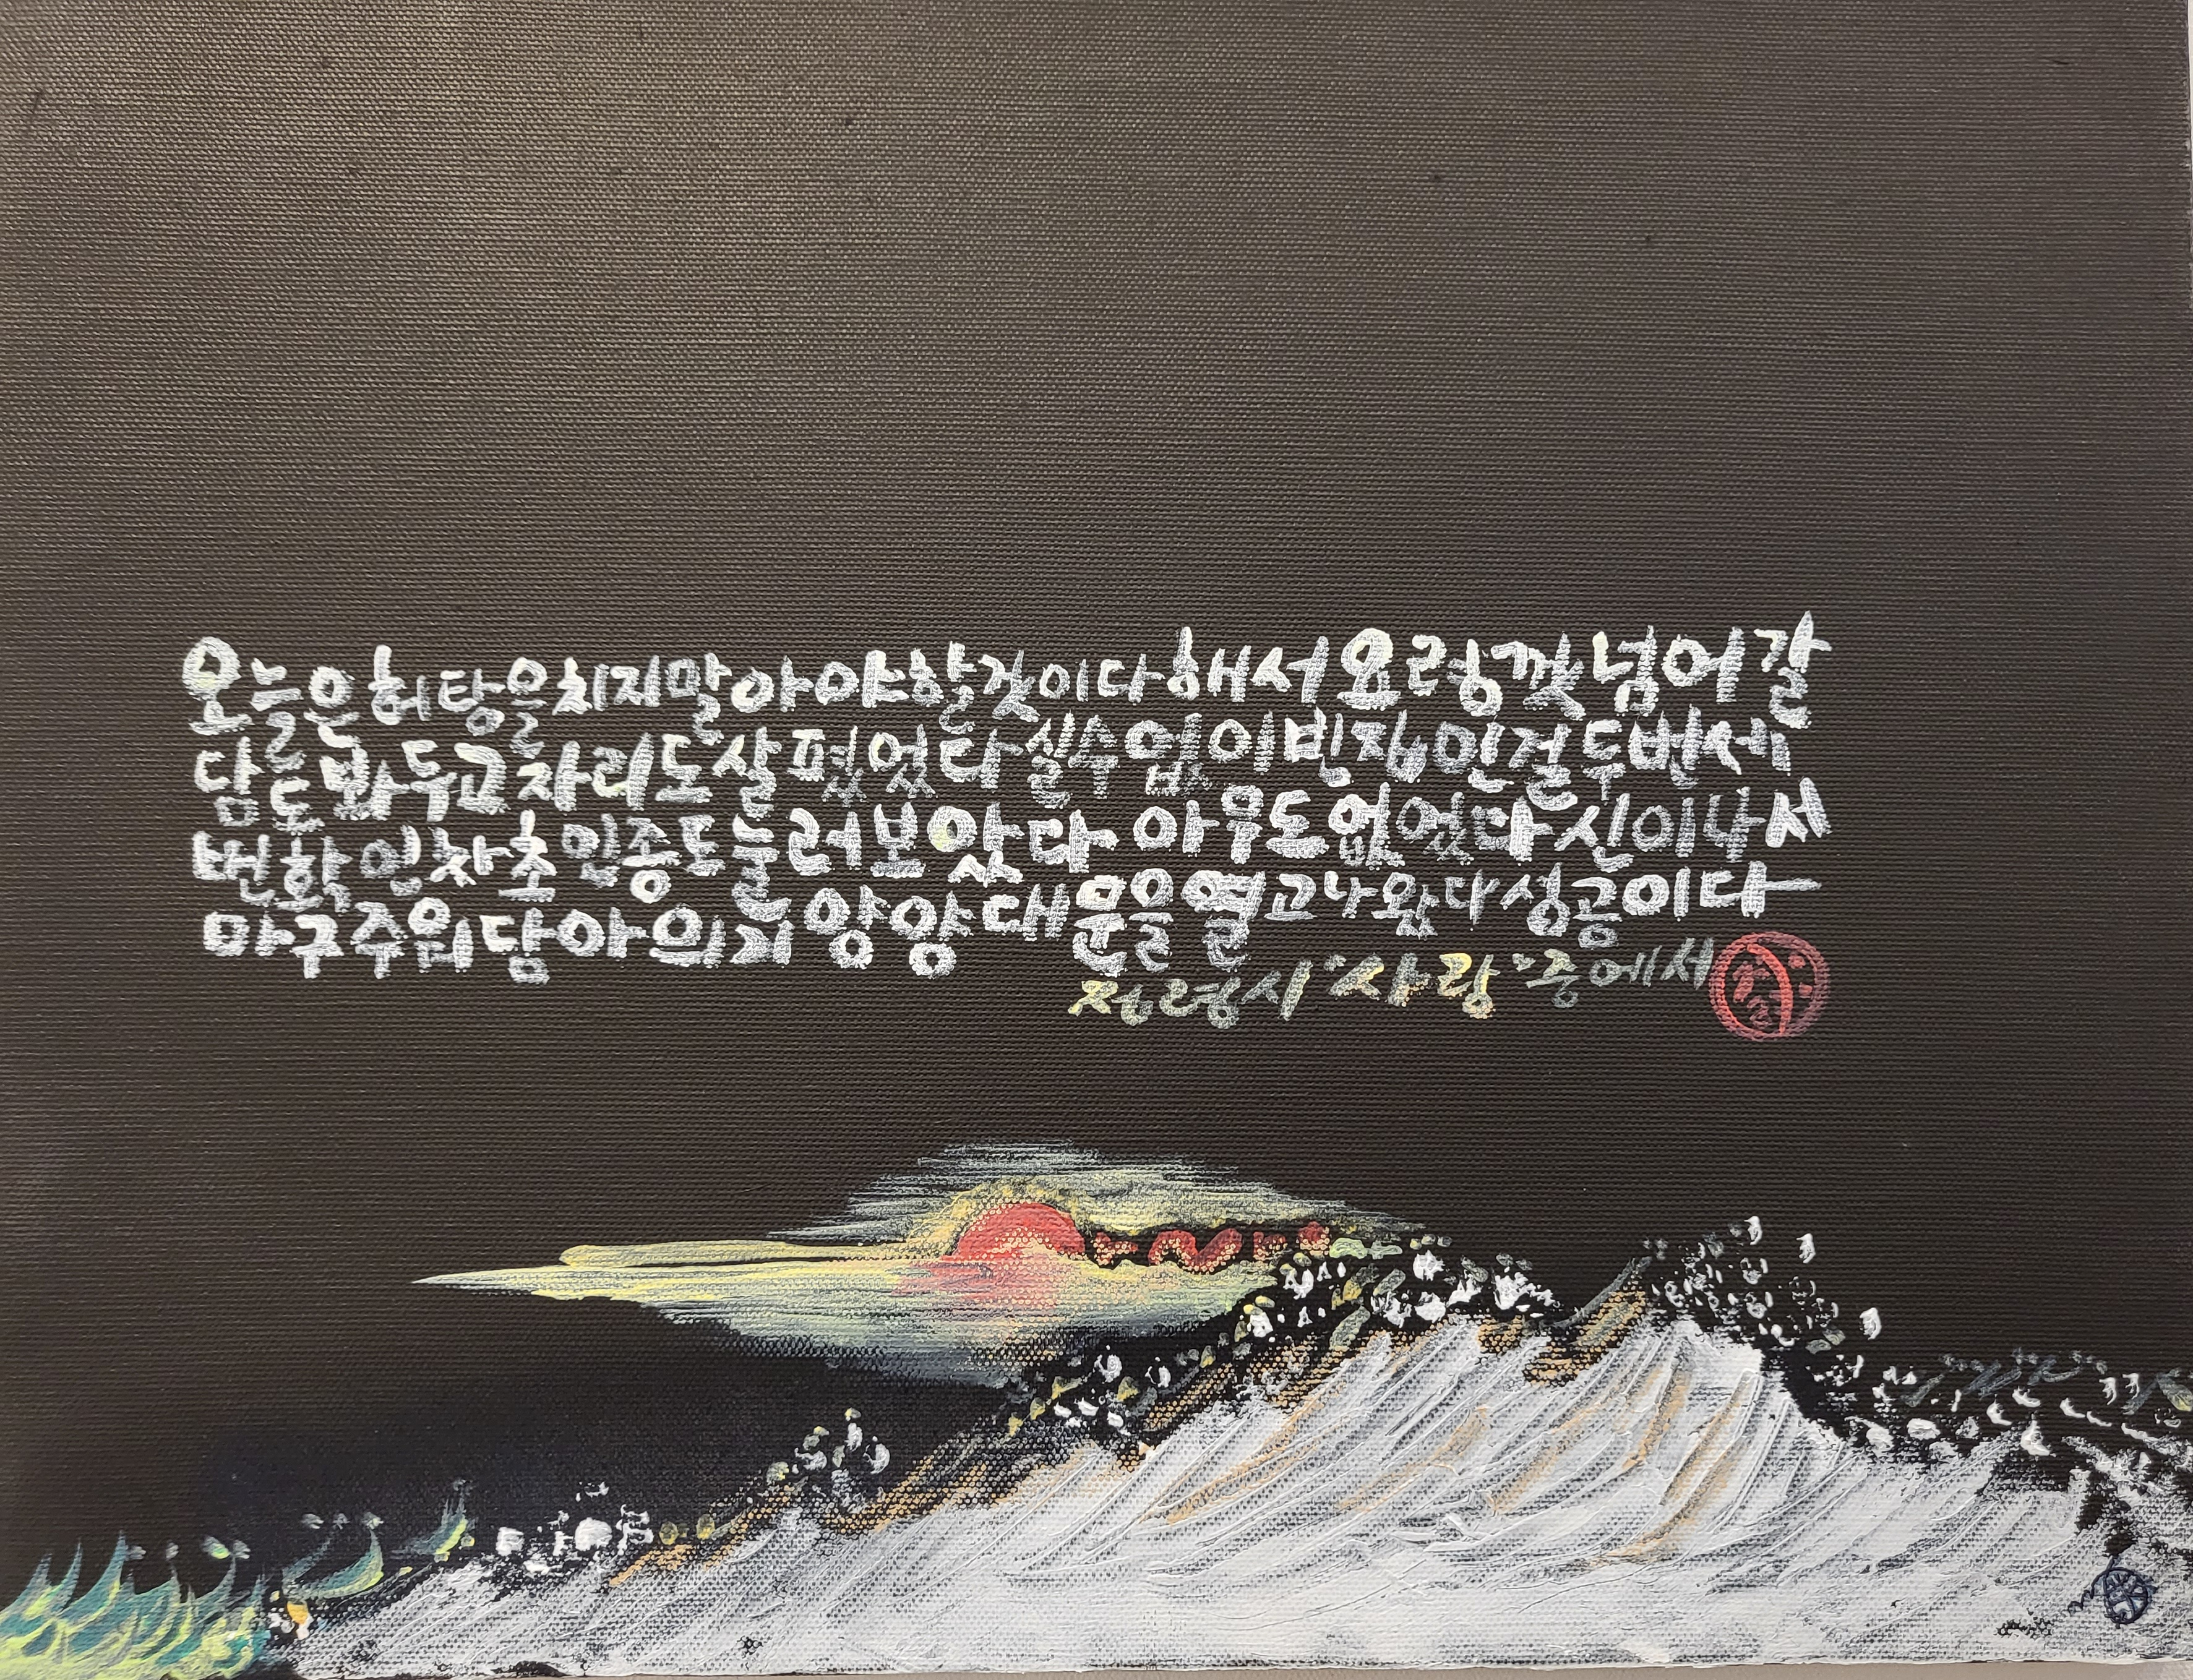 오늘은 허탕을 치지 말아야 할 것이다 해서 요령껏 넘어갈
담도 봐두고 자리도 살폈었다 실수 없이 빈집인걸 두번 세
번 확인차 초인종도 눌러보았다 아무도 없었다 신이나서
마구 주워담아 의기양양 대문을 열고 나왔다 성공이다
정령시 "사랑" 중에서